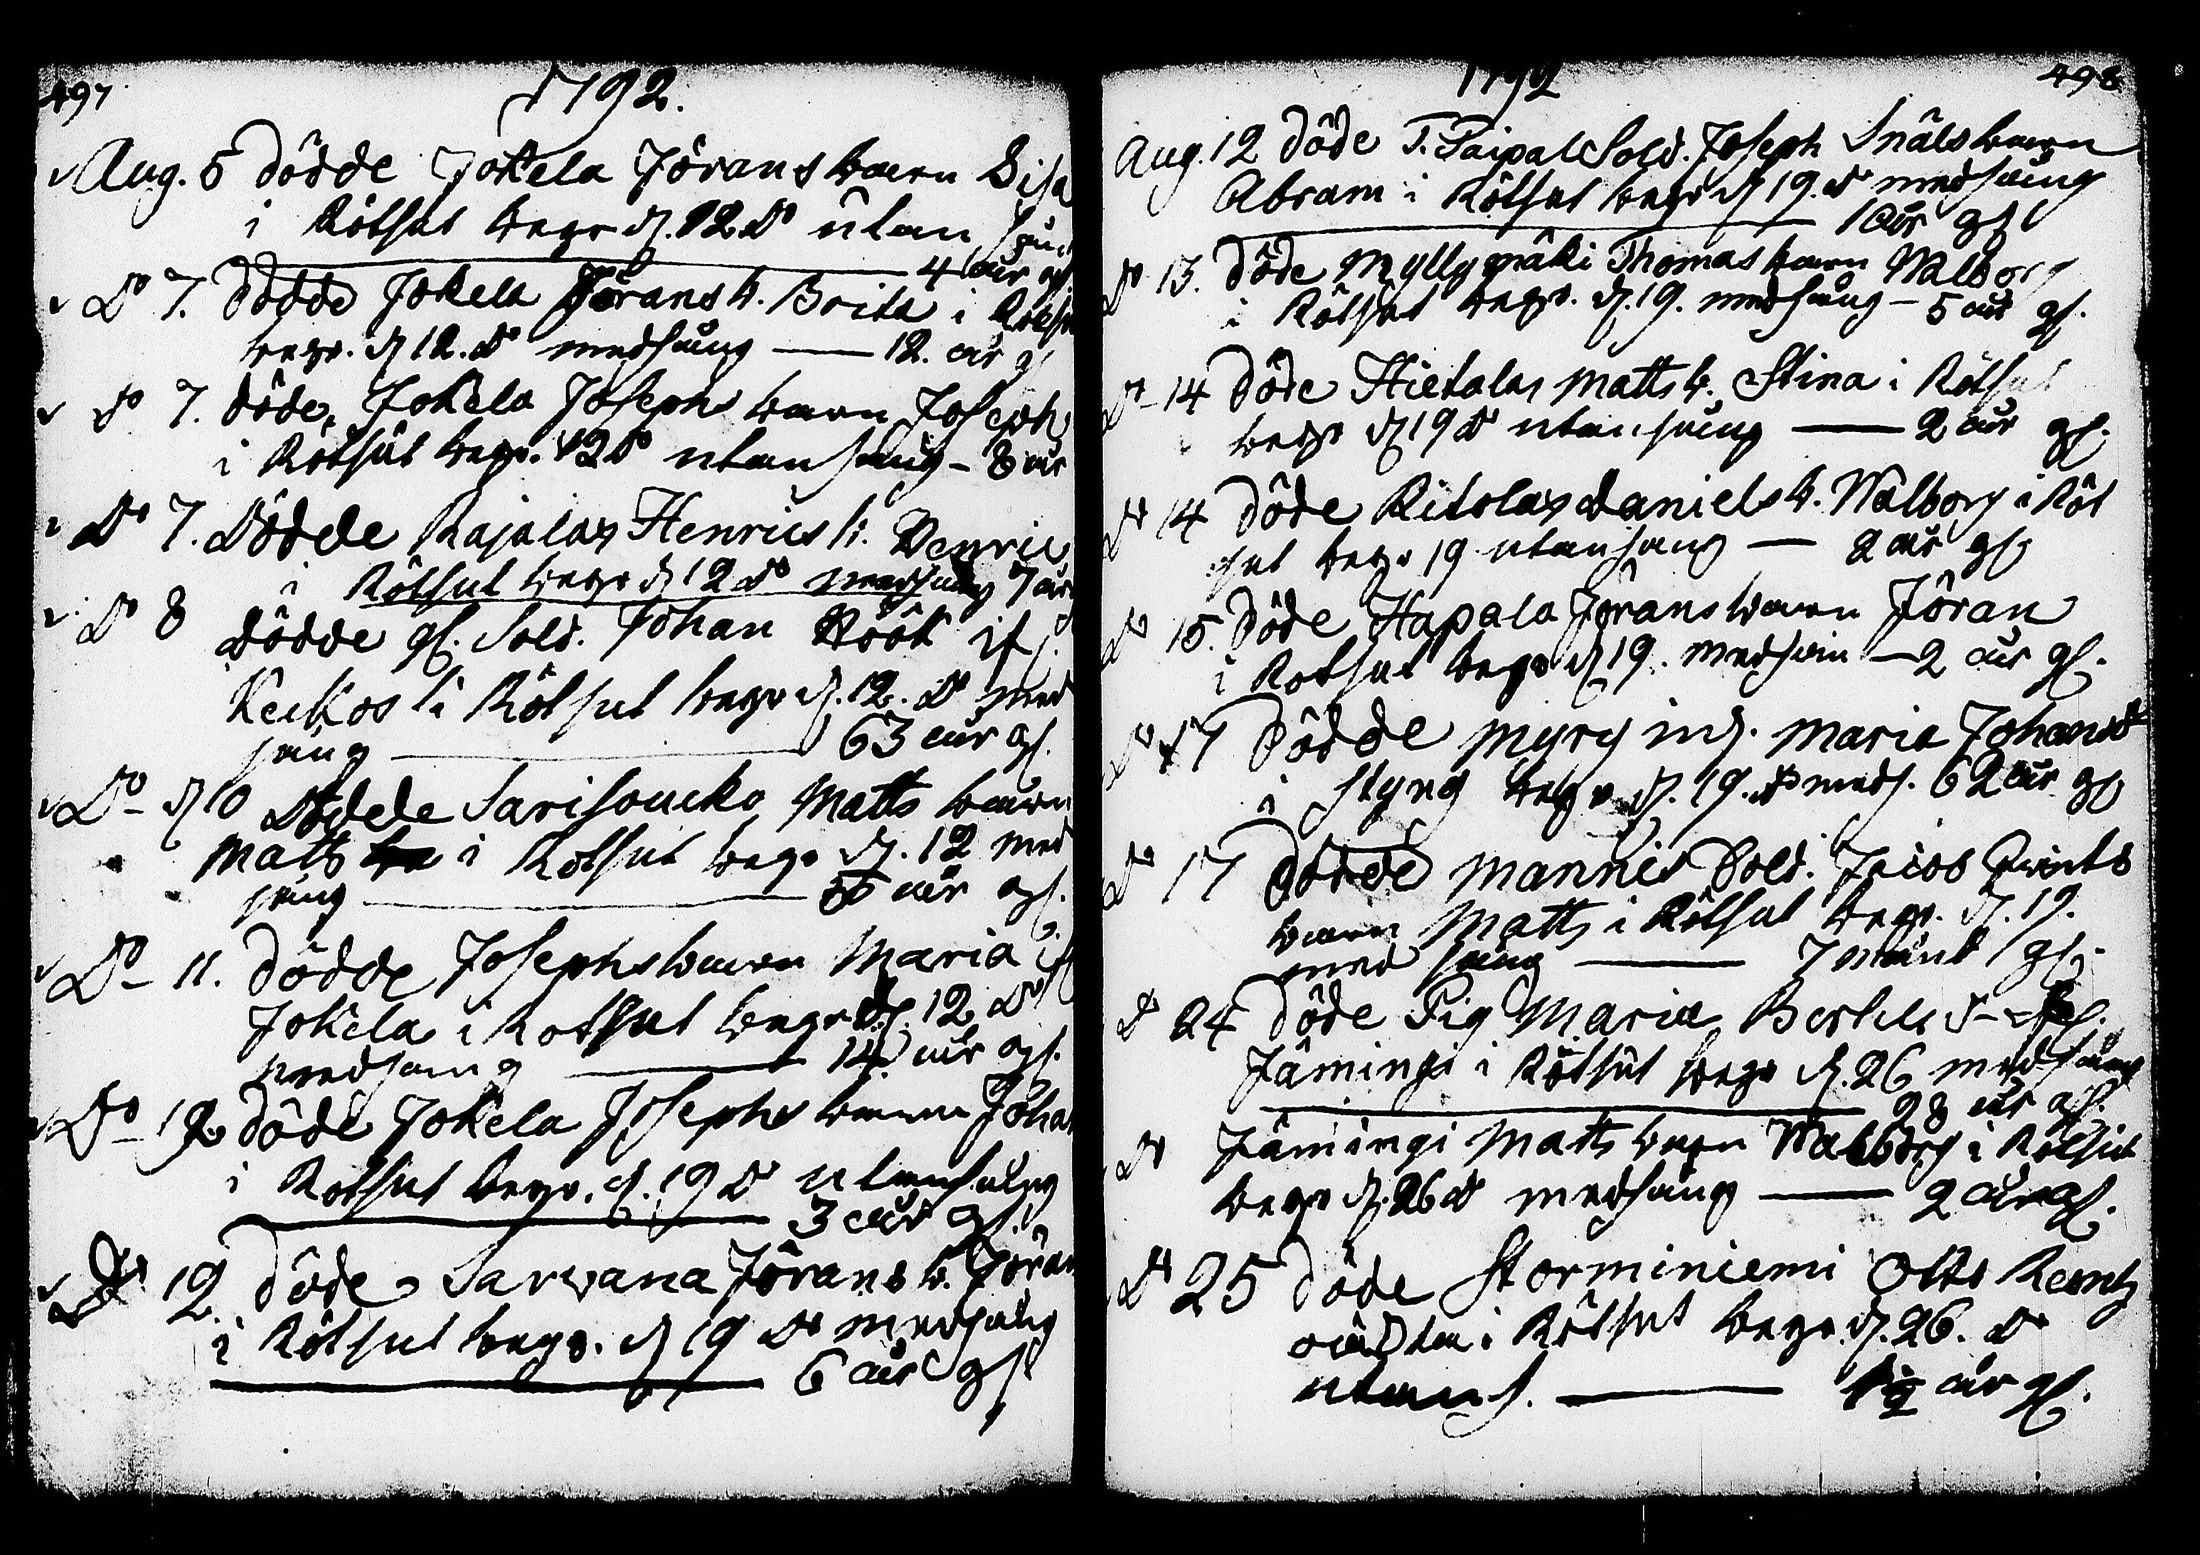 497
1792.
Aug. 5 dödde Jokela Jörans barn Lisa
i Rötsut begr. d. 12 do utan sång
4 åur gl.
do 7. dödde Jokela Jörans b. Brita i Rötsut
begr. d 12. do medsång — 12. åur gl
do 7. döde, Jokela Josephs barn Joseph
i Rötsut begr. 12 do utan sång - 8 åur
do 7. dödde Rajalas Henrics b. Henric
i Rötsut begr d 12 do medsång 7 åur
do 8 dödde gl. Sold. Johan Röök if.
i Rötsut begr d. 12. do med
sång — 63 åur gl.
do - d 10 dödde Sarisoucko Matts barn
Matts i Rötsut begr d. 12 med
sång — åur gl.
do - 11. dödde Josephs barn Maria
Jokela i Rotsut begr d. 12 do
medsång — 14 åur gl.
do - 12 döde Jokela Josephs barn Johan
i Rotsut begr. d. 19 do utansång
3 åur gl.
do 12 döde Sarvana Jörans b. Jöran
i Rötsut begr. d 19 do medsång
6 åur gl
1792
498
Aug. 12 döde T. Paipal Sold. Joseph Snäls barn
Abram i Rötsut begr d 19. do medsång
1 åur gl
do 13. döde Myllymäki Thomas barn Walborg
i Rötsut begr. d. 19. medsång - 5 åur gl.
do - 14 döde Hietalas Matts b. Stina i Rötsut
begr d 19 do utansång — 2 åur gl.
do 14 döde Ritolas Daniels b. Walborg i Röt
sut begr 19 utansång — 2 åur gl
do 15. döde Hapala Jörans barn Jöran
i Rotsut begr d 19. — 2 åur gl.
do 17 dödde Myry inh. Maria Johansd
i begr d. 19. do meds. 62 åur gl
do 17 dödde Mannis Sold. Jacob
barn Matts i Rötsut begr. d. 19.
med sång — 7 månd gl.
do 24 döde Pig Maria
Jämingi i Rötsut begr d. 26 medsång
28 åur gl.
do Jämingi Matts barn Walborg i Rötsut
begr d. 26 do medsång — 2 åur gl.
do 25 döde Storminiemi
i Rötsut begr. d. 26. do
utans. — 1½ åur gl.